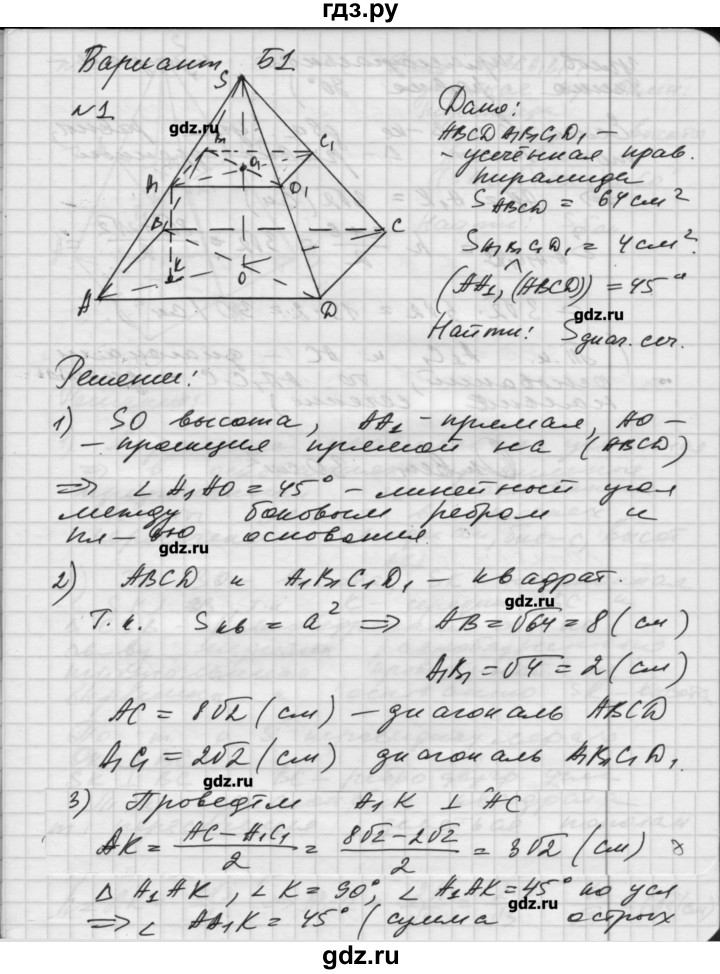 гдз.ру
Вариант Б1
№1
S
B₁
C₁
O₁
A₁
D₁
B
C
K
O
A
D
gdz.ru
Дано:
ABCDA₁B₁C₁D₁ —
- усечённая прав.
пирамида
S ABCD = 64 см²
S A₁B₁C₁D₁ = 4 см².
(AA₁, ^(ABCD)) = 45°
gdz.ru
Найти: S диаг. сеч.
Решение:
1) SO высота, AA₁ - прямая, AO -
- проекция прямой на (ABCD)
⇒ ∠A₁AO = 45° - линейный угол
между боковым ребром и
пл-тью основания.
gdz.ru
2) ABCD и A₁B₁C₁D₁ - квадрат.
gdz.ru
Т.к. Sкв = a² ⇒ AB = √64 = 8 (см)
A₁B₁ = √4 = 2 (см)
AC = 8√2 (см) - диагональ ABCD
A₁C₁ = 2√2 (см) диагональ A₁B₁C₁D₁.
gdz.ru
3) Проведём A₁K ⊥ AC
AK = (AC - A₁C₁)/2 = (8√2 - 2√2)/2 = 3√2 (см)
△ A₁AK, ∠K = 90°, ∠A₁AK = 45° по усл
gdz.ru
⇒ ∠AA₁K = 45° (сумма острых
gdz.ru